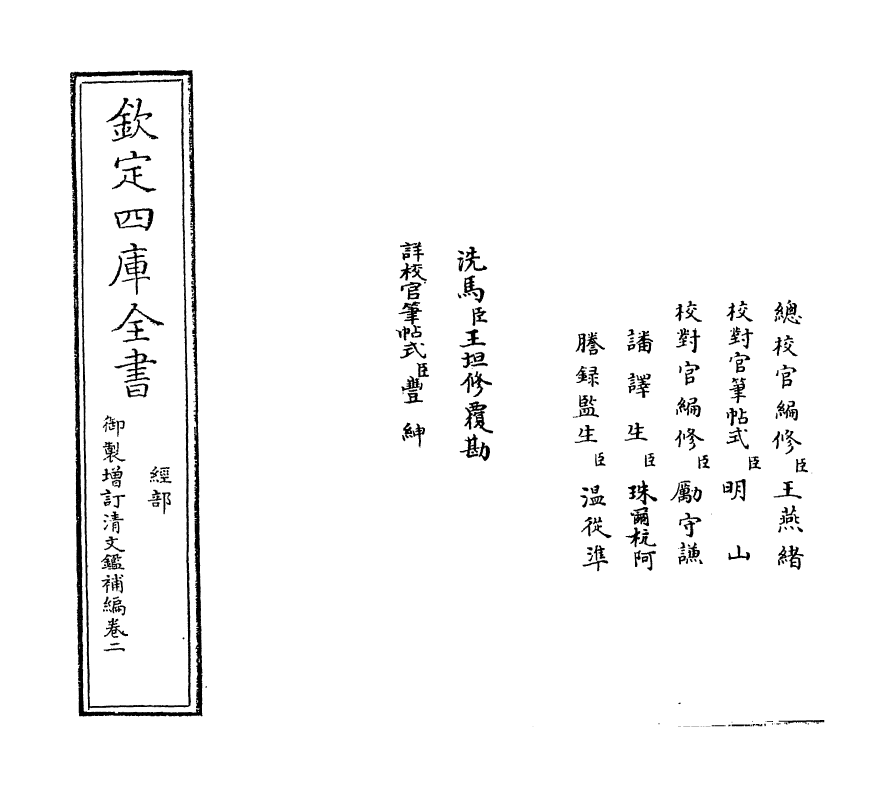 總校官編修臣王燕緒
校對官筆帖式臣明山
校對官編修臣勵守謙
譒譯生臣珠爾杭阿
謄録監生臣温從準
洗馬臣王坦修覆勘
詳校官筆帖式臣豐紳
欽定四庫全書
經部
御製增訂清文鑑補編卷二